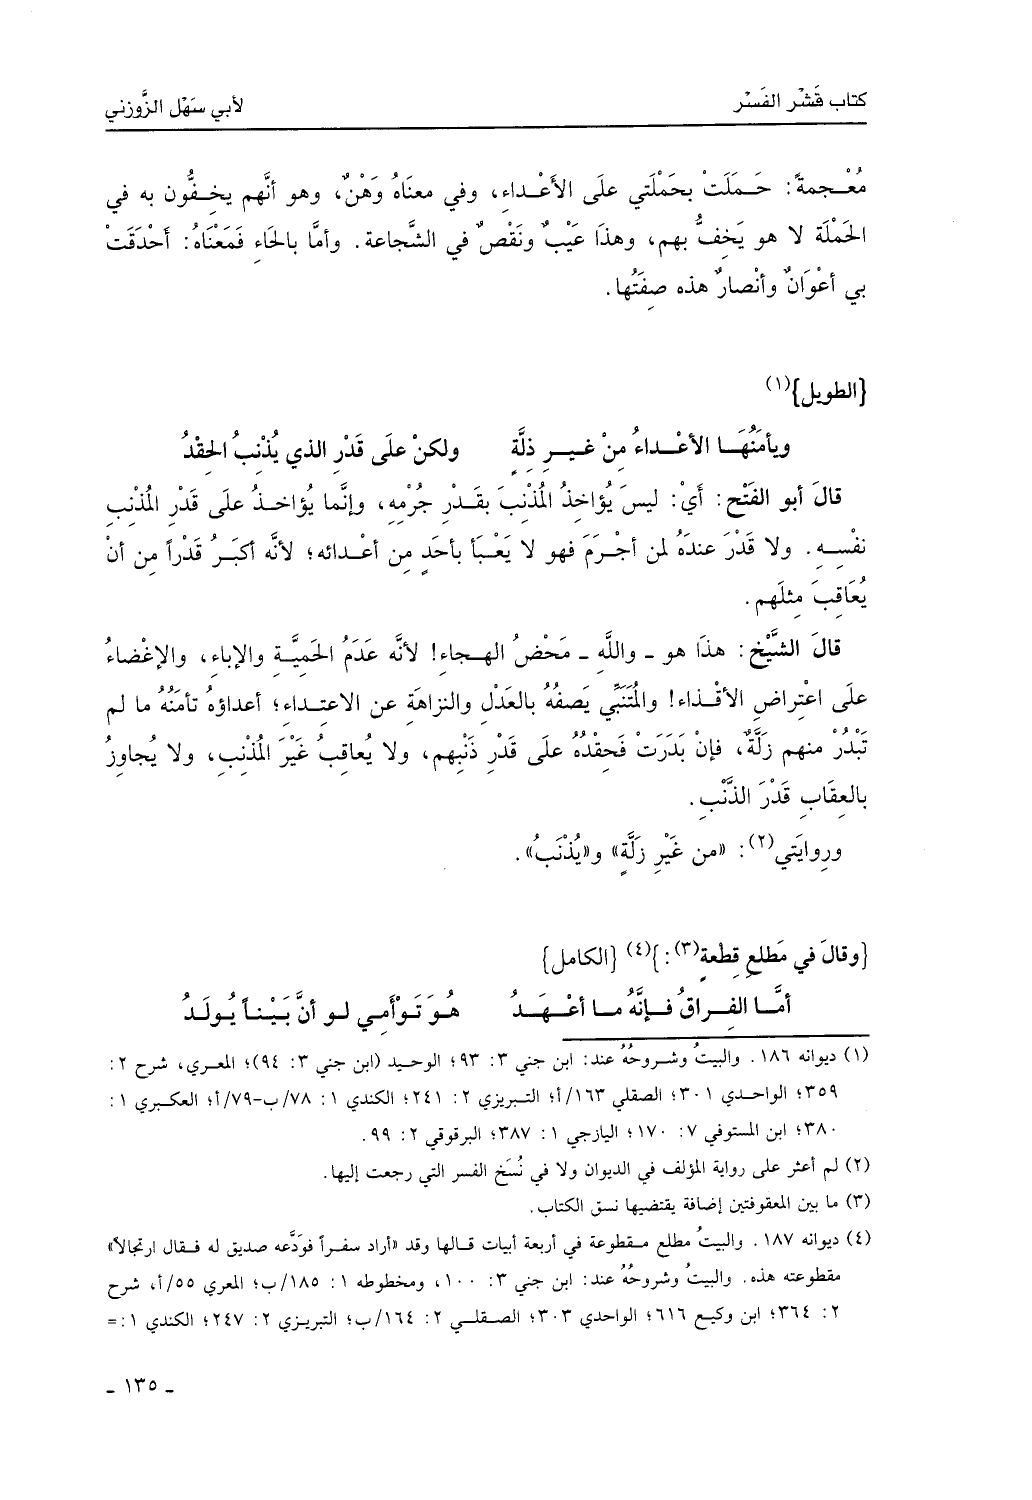 كتاب قَشْر الفَسْر
لأبي سَهْل الزَّوزني
مُعْجمة: حَمَلَتْ بحَمْلَتي علَى الأَعْداءِ، وفي معنَاهُ وَهْنٌ، وهو أنَّهم يخفُّون به في
الحَمْلَة لا هو يَخفُّ بهم، وهذَا عَيْبٌ ونَقْصٌ في الشَّجاعة. وأمَّا بالحَاءِ فَمَعْنَاهُ: أَحْدَقَتْ
بي أعْوَانٌ وأنْصارٌ هذه صِفَتُها.
{الطويل}(١)
ويأمَنُهَا الأعْداءُ مِنْ غيرِ ذِلَّةٍ     ولكنْ علَى قَدْرِ الذي يُذْنِبُ الحِقْدُ
قالَ أبو الفَتْحِ: أَيْ: ليسَ يُؤاخِذُ المُذْنِبَ بقَدْرِ جُرْمِهِ، وإنَّما يُؤاخذُ علَى قَدْرِ المُذْنِبِ
نفْسِهِ. ولا قَدْرَ عندَهُ لمن أجْرَمَ فهو لا يَعْبَأ بأحَدٍ من أعْدائه؛ لأنَّه أكبَرُ قَدْراً من أنْ
يُعَاقِبَ مِثلَهم.
قالَ الشَّيْخ: هذَا هو ـ واللَّهِ ـ مَحْضُ الهجاءِ! لأنَّه عَدَمُ الحَميَّةِ والإباءِ، والإغْضاءُ
علَى اعْتِراضِ الأقْذاءِ! والمُتَنَبِّي يَصِفُهُ بالعَدْلِ والنزاهَةِ عن الاعتِداءِ؛ أعداؤهُ تأمَنُهُ ما لم
تَبْدُرْ منهم زَلَّةٌ، فإنْ بَدَرَتْ فَحِقْدُهُ علَى قَدْرِ ذَنْبهم، ولا يُعاقِبُ غَيْرَ المُذْنبِ، ولا يُجاوِزُ
بالعِقَابِ قَدْرَ الذَّنْبِ.
ورِوايَتي(٢): «من غَيْرِ زَلَّةٍ» و«يُذْنَبُ».
{وقالَ في مَطْلعِ قِطعةٍ(٣):}(٤) {الكامل}
أمَّا الفِراقُ فإنَّهُ ما أعْهَدُ     هُوَ تَوْأَمي لو أنَّ بَيْناً يُولَدُ
(١) ديوانه ١٨٦. والبيتُ وشروحُهُ عند: ابن جني ٣: ٩٣؛ الوحيد (ابن جني ٣: ٩٤)؛ المعري، شرح ٢:
٣٥٩؛ الواحدي ٣٠١؛ الصقلي ١٦٣/أ؛ التبريزي ٢: ٢٤١؛ الكندي ١: ٧٨/ب-٧٩/أ؛ العكبري ١:
٣٨٠؛ ابن المستوفي ٧: ١٧٠؛ اليازجي ١: ٣٨٧؛ البرقوقي ٢: ٩٩.
(٢) لم أعثر على رواية المؤلف في الديوان ولا في نُسَخ الفسر التي رجعت إليها.
(٣) ما بين المعقوفتين إضافة يقتضيها نسق الكتاب.
(٤) ديوانه ١٨٧. والبيتُ مطلع مقطوعة في أربعة أبيات قالها وقد «أراد سفراً فودَّعه صديق له فقال ارتجالاً»
مقطوعته هذه. والبيتُ وشروحُهُ عند: ابن جني ٣: ١٠٠، ومخطوطه ١: ١٨٥/ب؛ المعري ٥٥/أ، شرح
٢: ٣٦٤؛ ابن وكيع ٦١٦؛ الواحدي ٣٠٣؛ الصقلي ٢: ١٦٤/ب؛ التبريزي ٢: ٢٤٧؛ الكندي ١:=
ـ ١٣٥ ـ